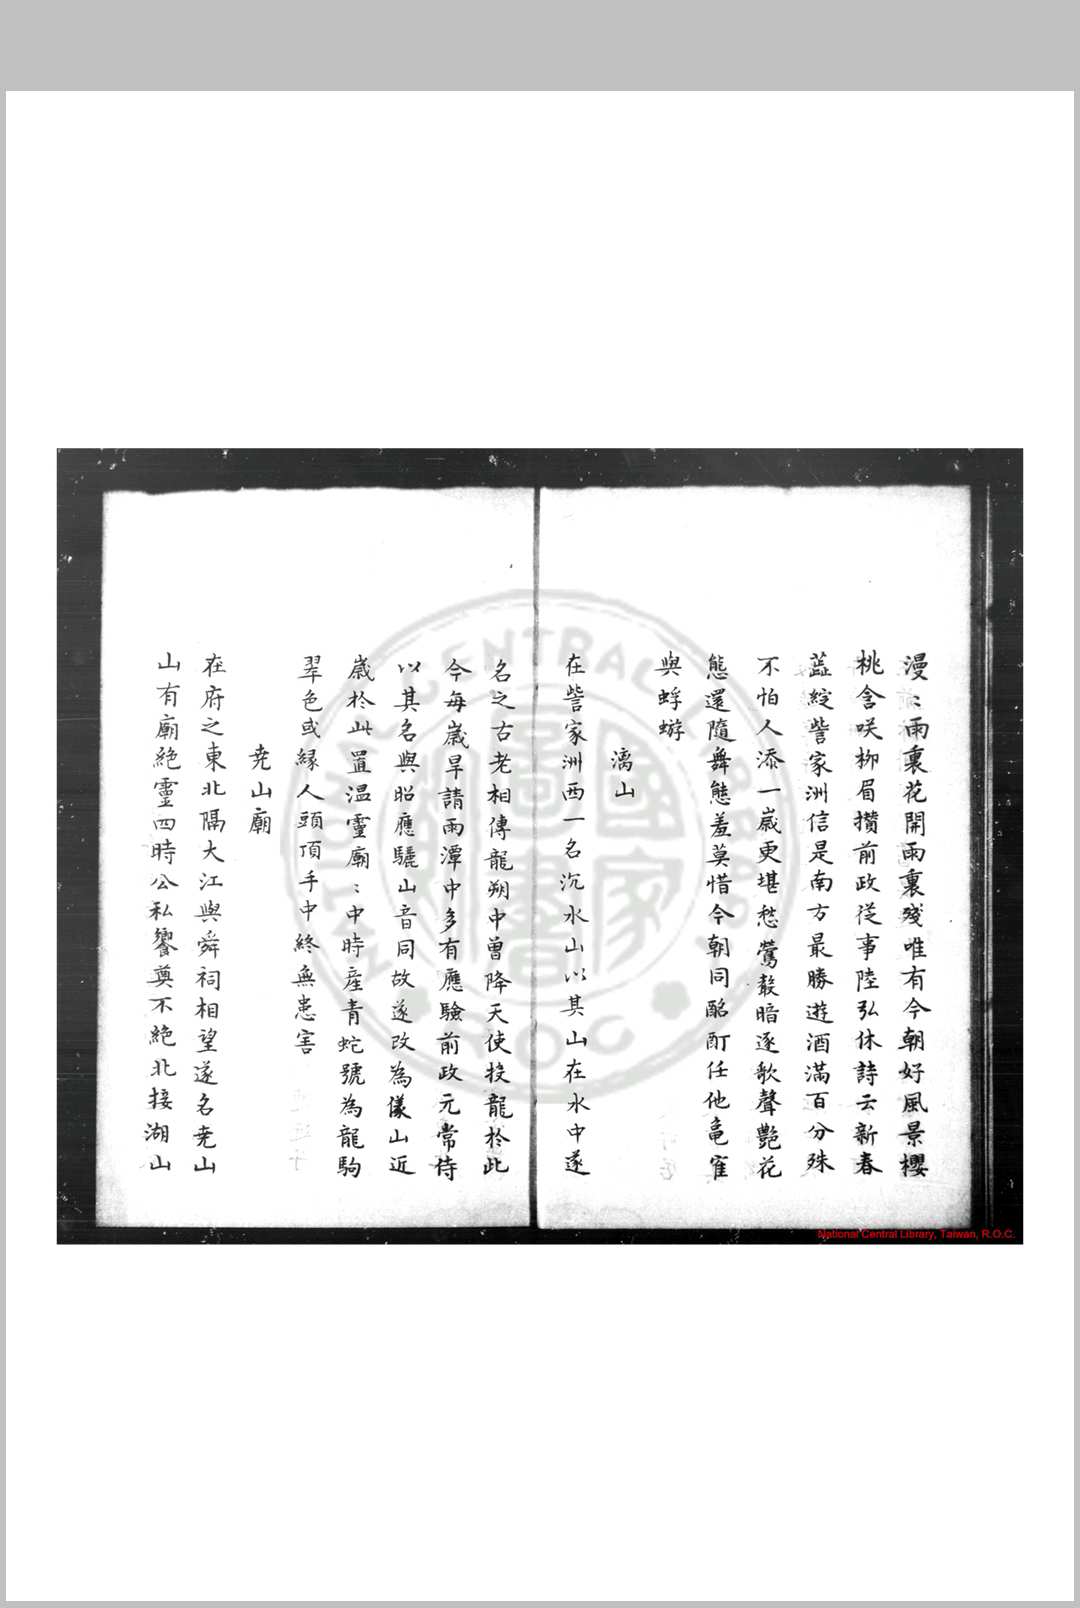 漫〻雨裏花開雨裏殘唯有今朝好風景櫻
桃含咲柳眉攅前政従事陸弘休詩云新春
蕋綻訾家洲信是南方最勝遊酒滿百分殊
不怕人添一歲更堪愁鶯聲暗逐歌聲艷花
態還隨舞態羞莫惜今朝同酩酊任他龜寉
與蜉蝣
漓山
在訾家洲西一名沉水山以其山在水中遂
名之古老相傳龍朔中曽降天使投龍於此
今每歲旱請雨潭中多有應驗前政元常侍
以其名與昭應驪山音同故遂改為儀山近
歲於此置温靈廟〻中時産青蛇號為龍駒
翠色或縁人頭頂手中終無患害
尭山廟
在府之東北隔大江與舜祠相望遂名尭山
山有廟絶靈四時公私饗奠不絶北接湖山
NATIONAL CENTRAL LIBRARY
R.O.C.
國家圖書館
National Central Library, Taiwan, R.O.C.